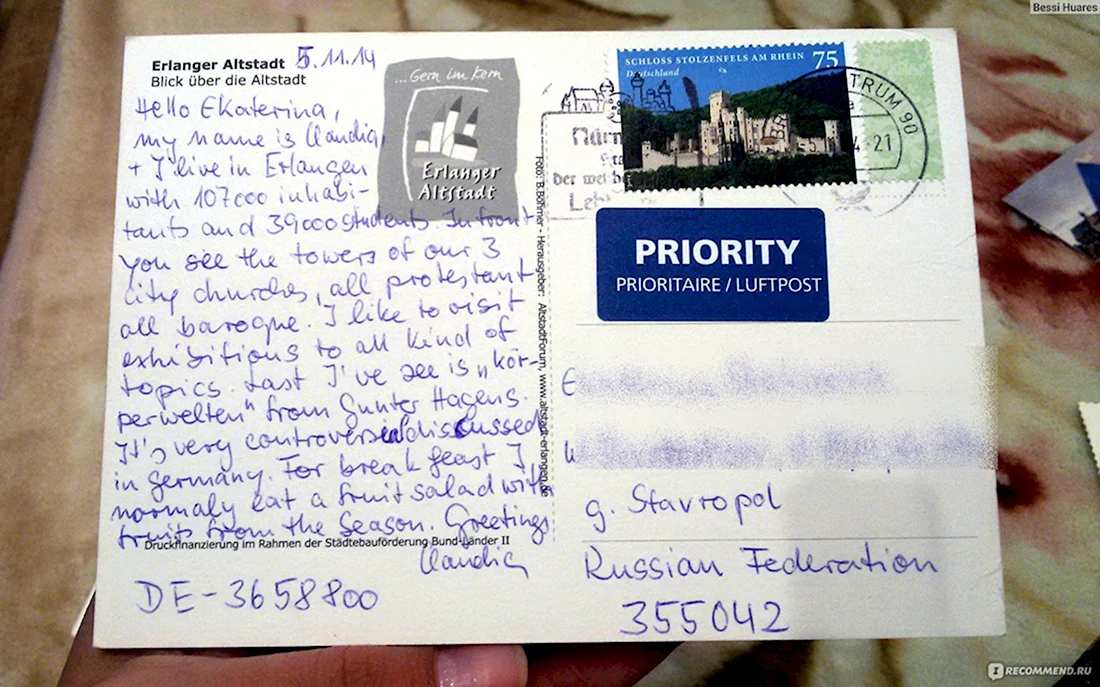 Bessi Huares
Erlanger Altstadt 5.11.14
Blick über die Altstadt
Hello Ekaterina,
my name is Claudia,
+ I live in Erlangen
with 107000 inhabi-
tants and 39000 students. In front
you see the towers of our 3
city churches, all protestant
all baroque. I like to visit
exhibitions to all kind of
topics. Last I've see is „Kör-
perwelten" from Gunter Hagens.
It's very controversial discussed
in Germany. For break feast I
normaly eat a fruit salad with
fruits from the Season. Greetings
Claudia
Druckfinanzierung im Rahmen der Städtebauförderung Bund-Länder II
DE-3658800
...Gern im Kern
Erlanger
Altstadt
Foto: B.Böhmer - Herausgeber: AltstadtForum, www.altstadt-erlangen.de
SCHLOSS STOLZENFELS AM RHEIN 75
Deutschland
Nürn
der we
TRUM 90
-21
PRIORITY
PRIORITAIRE / LUFTPOST
g. Stavropol
Russian Federation
355042
RECOMMEND.RU